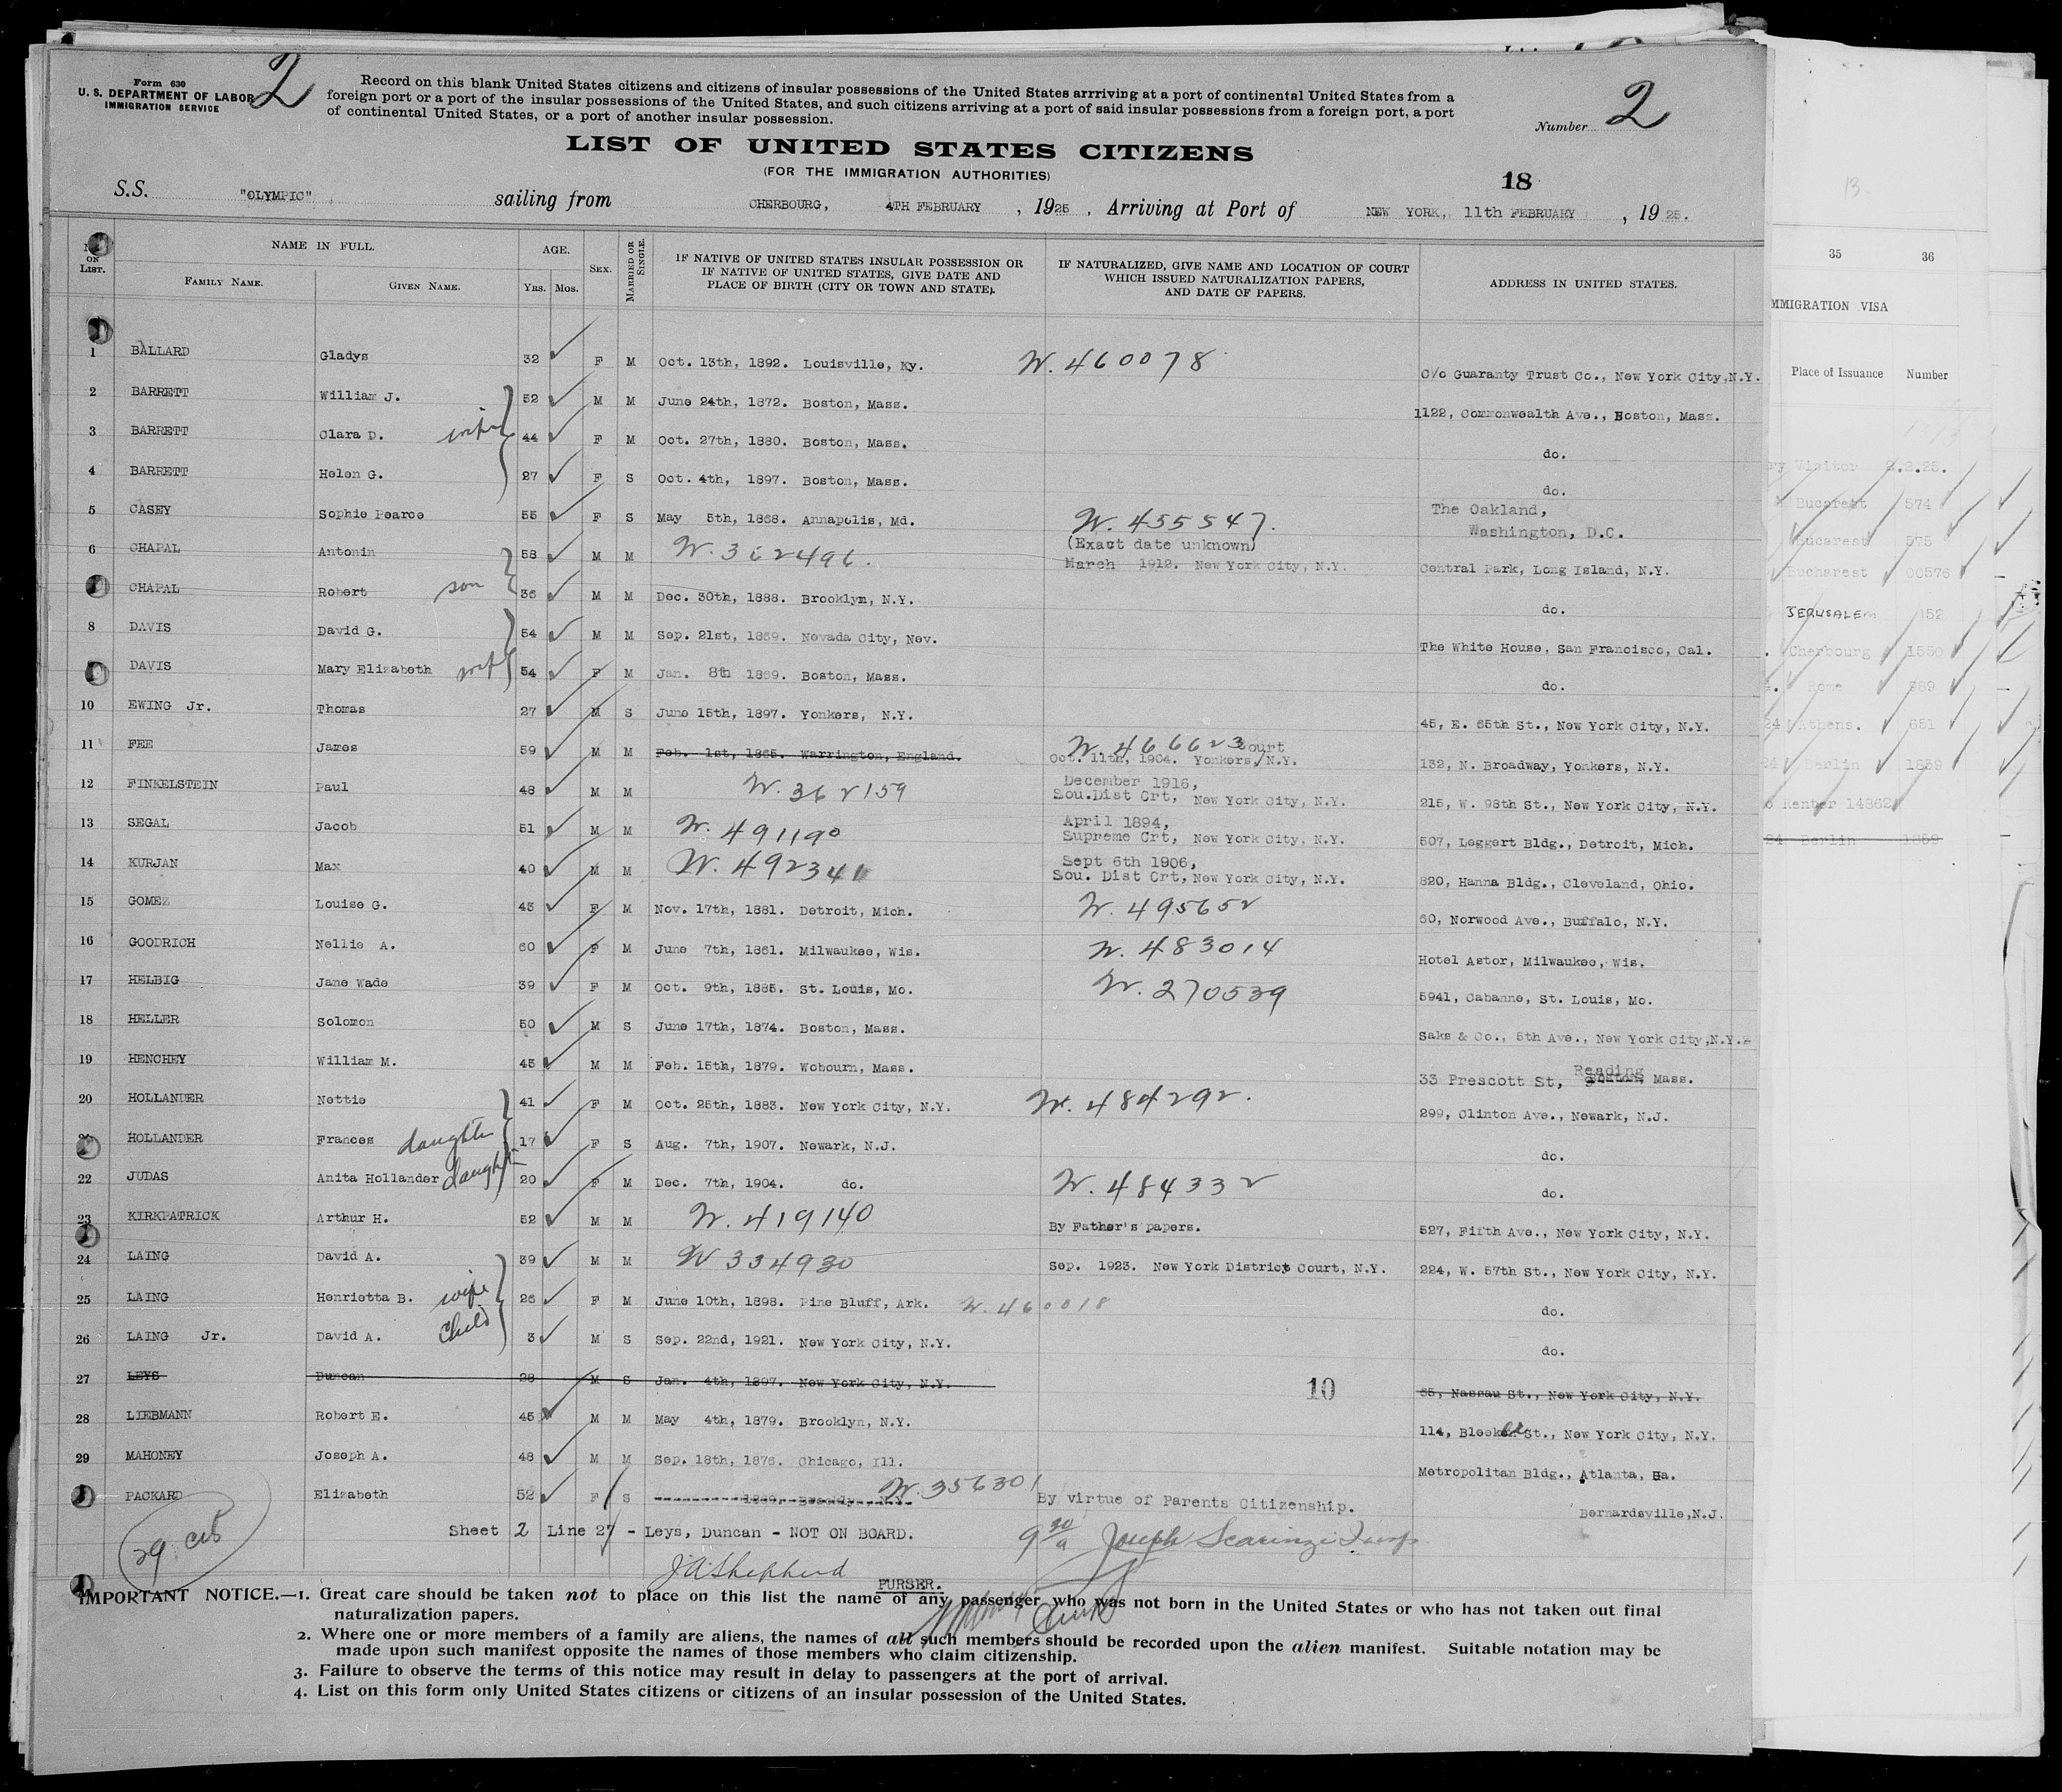 Form 630
U. S. DEPARTMENT OF LABOR
IMMIGRATION SERVICE
2
Record on this blank United States citizens and citizens of insular possessions of the United States arrriving at a port of continental United States from a
foreign port or a port of the insular possessions of the United States, and such citizens arriving at a port of said insular possessions from a foreign port, a port
of continental United States, or a port of another insular possession.
Number 2
LIST OF UNITED STATES CITIZENS
(FOR THE IMMIGRATION AUTHORITIES)
18
S.S. "OLYMPIC" sailing from CHERBOURG, 4TH FEBRUARY, 1925, Arriving at Port of NEW YORK, 11th FEBRUARY, 1925.
ON LIST. NAME IN FULL. FAMILY NAME. GIVEN NAME. AGE. YRS. MOS. SEX. MARRIED OR SINGLE. IF NATIVE OF UNITED STATES INSULAR POSSESSION OR IF NATIVE OF UNITED STATES, GIVE DATE AND PLACE OF BIRTH (CITY OR TOWN AND STATE). IF NATURALIZED, GIVE NAME AND LOCATION OF COURT WHICH ISSUED NATURALIZATION PAPERS, AND DATE OF PAPERS. ADDRESS IN UNITED STATES.
1 BALLARD Gladys 32 ✓ F M Oct. 13th, 1892. Louisville, Ky. W. 460078 C/o Guaranty Trust Co., New York City,N.Y.
2 BARRETT William J. 52 ✓ M M June 24th, 1872. Boston, Mass. 1122, Commonwealth Ave., Boston, Mass.
3 BARRETT Clara D. wife 44 ✓ F M Oct. 27th, 1880. Boston, Mass. do.
4 BARRETT Helen G. 27 ✓ F S Oct. 4th, 1897. Boston, Mass. do.
5 CASEY Sophie Pearce 55 ✓ F S May 5th, 1868. Annapolis, Md. W. 455547. The Oakland, Washington, D.C.
6 CHAPAL Antonin 58 ✓ M M W. 362496. (Exact date unknown) March 1912. New York City, N.Y. Central Park, Long Island, N.Y.
CHAPAL Robert son 36 ✓ M M Dec. 30th, 1888. Brooklyn, N.Y. do.
8 DAVIS David G. 54 ✓ M M Sep. 21st, 1869. Nevada City, Nev. The White House, San Francisco, Cal.
DAVIS Mary Elizabeth wife 54 ✓ F M Jan. 8th 1869. Boston, Mass. do.
10 EWING Jr. Thomas 27 ✓ M S June 15th, 1897. Yonkers, N.Y. 45, E. 65th St., New York City, N.Y.
11 FEE James 59 ✓ M M Feb. 1st, 1865. Warrington, England. W. 466623 Court Oct. 11th, 1904. Yonkers, N.Y. 132, N. Broadway, Yonkers, N.Y.
12 FINKELSTEIN Paul 48 ✓ M M W. 362159 December 1916, Sou.Dist Crt, New York City, N.Y. 215, W. 98th St., New York City, N.Y.
13 SEGAL Jacob 51 ✓ M M W. 491190 April 1894, Supreme Crt, New York City, N.Y. 507, Leggert Bldg., Detroit, Mich.
14 KURJAN Max 40 ✓ M M W. 492341 Sept 6th 1906, Sou. Dist Crt, New York City, N.Y. 820, Hanna Bldg., Cleveland, Ohio.
15 GOMEZ Louise G. 43 ✓ F M Nov. 17th, 1881. Detroit, Mich. W. 495652 60, Norwood Ave., Buffalo, N.Y.
16 GOODRICH Nellie A. 60 ✓ F M June 7th, 1861. Milwaukee, Wis. W. 483014 Hotel Astor, Milwaukee, Wis.
17 HELBIG Jane Wade 39 ✓ F M Oct. 9th, 1885. St. Louis, Mo. W. 270539 5941, Cabanne, St. Louis, Mo.
18 HELLER Solomon 50 ✓ M S June 17th, 1874. Boston, Mass. Saks & Co., 5th Ave., New York City,N.Y.
19 HENCHEY William M. 45 ✓ M M Feb. 15th, 1879. Wobourn, Mass. 33 Prescott St, Reading Boston, Mass.
20 HOLLANDER Nettie 41 ✓ F M Oct. 25th, 1883. New York City, N.Y. W. 484292. 299, Clinton Ave., Newark, N.J.
HOLLANDER Frances daughter 17 ✓ F S Aug. 7th, 1907. Newark, N.J. do.
22 JUDAS Anita Hollander daughter 20 ✓ F M Dec. 7th, 1904. do. W. 484332 do.
23 KIRKPATRICK Arthur H. 52 ✓ M M W. 419140 By Father's papers. 527, Fifth Ave., New York City, N.Y.
24 LAING David A. 39 ✓ M M W 334930 Sep. 1923. New York District Court, N.Y. 224, W. 57th St., New York City, N.Y.
25 LAING Henrietta B. wife 26 ✓ F M June 10th, 1898. Pine Bluff, Ark. W. 460018 do.
26 LAING Jr. David A. Child 3 ✓ M S Sep. 22nd, 1921. New York City, N.Y. do.
27 LEYS Duncan 28 M S Jan. 4th, 1897. New York City, N.Y. 10 65, Nassau St., New York City, N.Y.
28 LIEBMANN Robert E. 45 ✓ M M May 4th, 1879. Brooklyn, N.Y. 114, Bleeker St., New York City, N.Y.
29 MAHONEY Joseph A. 48 ✓ M M Sep. 18th, 1876. Chicago, Ill. Metropolitan Bldg., Atlanta, Ga.
PACKARD Elizabeth 52 ✓ F S 1869. Brooklyn, N.Y. W. 356301 By virtue of Parents Citizenship. Bernardsville,N.J.
29 cits
Sheet 2 Line 27 - Leys, Duncan - NOT ON BOARD. 9 30/a Joseph Scarinzi Insp
J A Shepherd
PURSER.
IMPORTANT NOTICE.—1. Great care should be taken not to place on this list the name of any passenger who was not born in the United States or who has not taken out final
naturalization papers.
2. Where one or more members of a family are aliens, the names of all such members should be recorded upon the alien manifest. Suitable notation may be
made upon such manifest opposite the names of those members who claim citizenship.
3. Failure to observe the terms of this notice may result in delay to passengers at the port of arrival.
4. List on this form only United States citizens or citizens of an insular possession of the United States.
13
35 36
IMMIGRATION VISA
Place of Issuance Number
Visitor 2.2.25.
Bucarest 574
Bucarest 575
Bucharest 00576
JERUSALEM 152
Cherbourg 1550
Rome 989
24 Athens. 651
24 Berlin 1859
Renter 14862
24 Berlin 1859